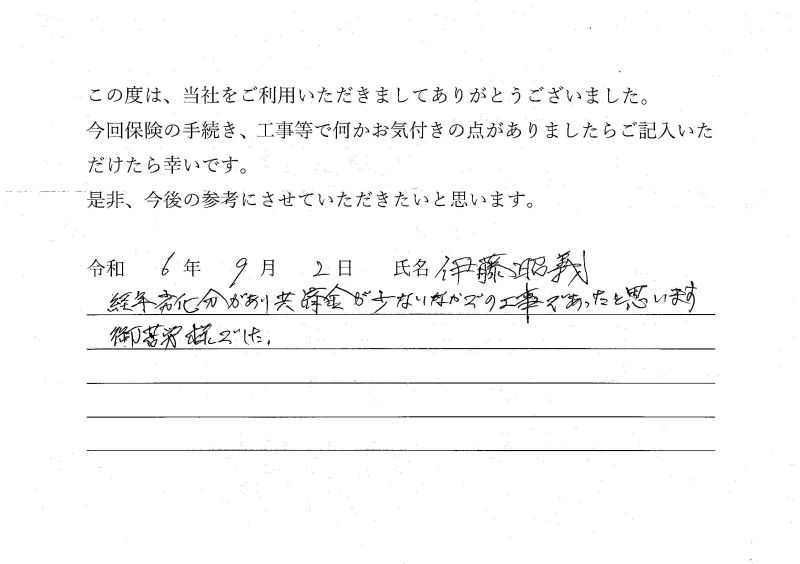 この度は、当社をご利用いただきましてありがとうございました。
今回保険の手続き、工事等で何かお気付きの点がありましたらご記入いた
だけたら幸いです。
是非、今後の参考にさせていただきたいと思います。
令和 6年 9月 2日 氏名 伊藤昭義
経年劣化分があり共済金が少ないなかでの工事であったと思います
御苦労様でした。